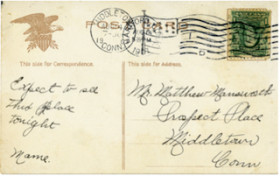 POST CARD
MIDDLETOWN
CONN.
This side for Correspondence.
This side for Address.
Expect to see
this place
tonight
Mame.
Mr. Matthew Mansworth
Prospect Place
Middletown
Conn